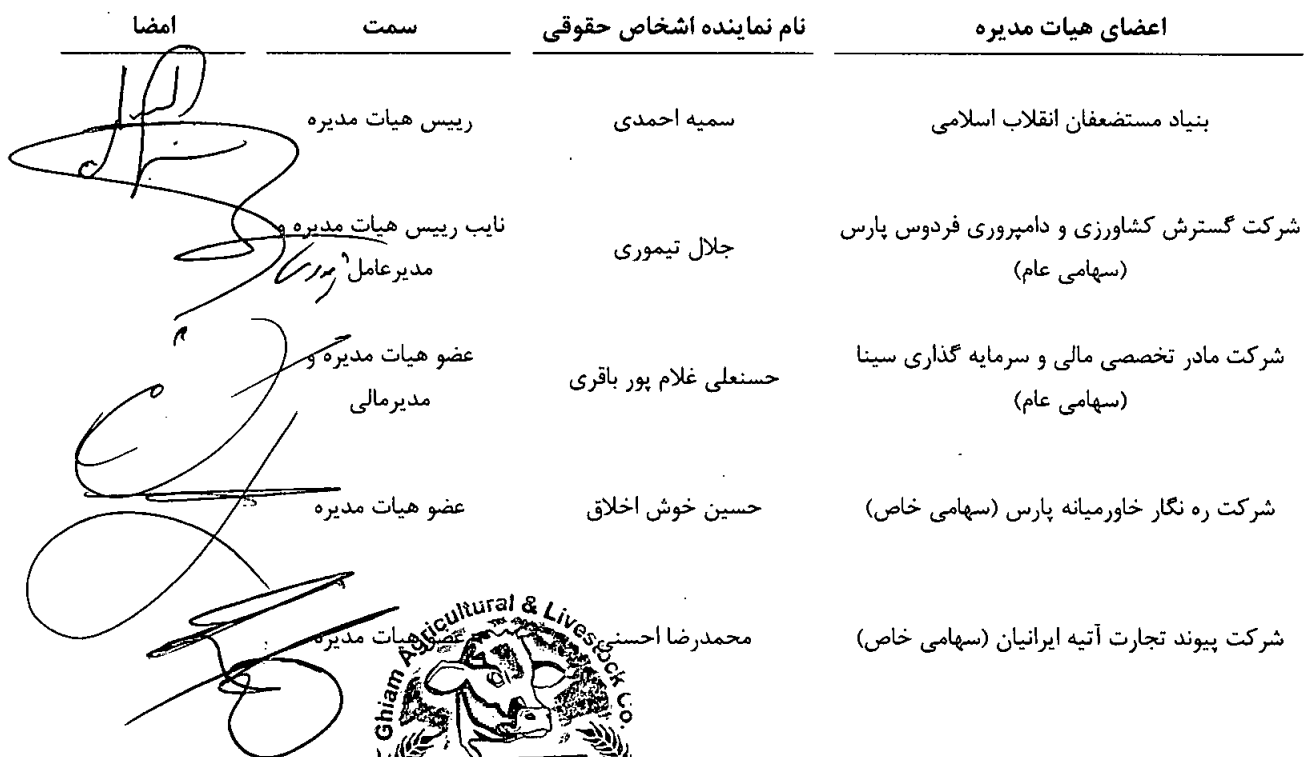 اعضای هیات مدیره نام نماینده اشخاص حقوقی سمت امضا
بنیاد مستضعفان انقلاب اسلامی سمیه احمدی رییس هیات مدیره
شرکت گسترش کشاورزی و دامپروری فردوس پارس (سهامی عام) جلال تیموری نایب رییس هیات مدیره و مدیرعامل
شرکت مادر تخصصی مالی و سرمایه گذاری سینا (سهامی عام) حسنعلی غلام پور باقری عضو هیات مدیره و مدیرمالی
شرکت ره نگار خاورمیانه پارس (سهامی خاص) حسین خوش اخلاق عضو هیات مدیره
شرکت پیوند تجارت آتیه ایرانیان (سهامی خاص) محمدرضا احسنی عضو هیات مدیره
Ghiam Agricultural & Livestock Co.